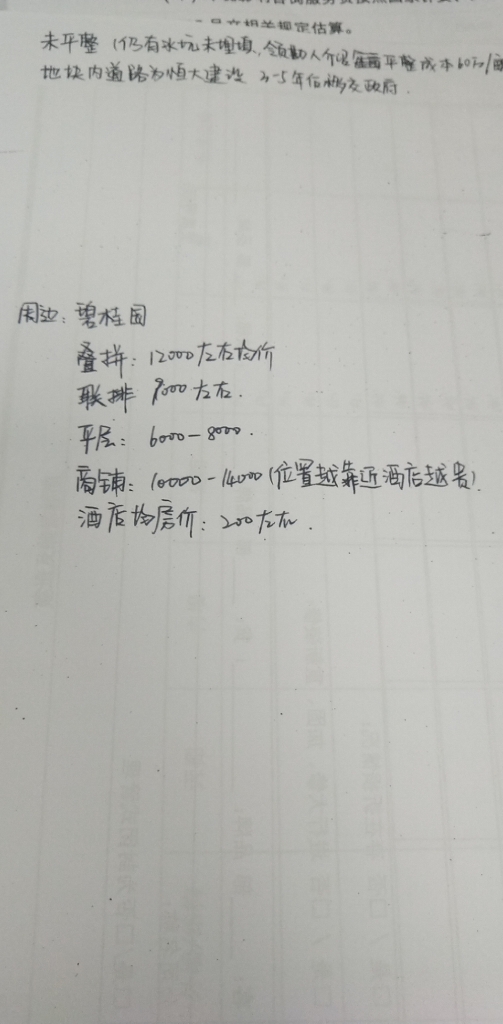 相关规定估算。
未平整(仍有水坑未埋填,领勘人介绍平整成本60万/亩
地块内道路为恒大建设 3-5年后移交政府.
周边: 碧桂园
叠拼: 12000左右均价
联排 9000左右.
平层: 6000-8000.
商铺: 10000-14000(位置越靠近酒店越贵).
酒店均房价: 200左右.